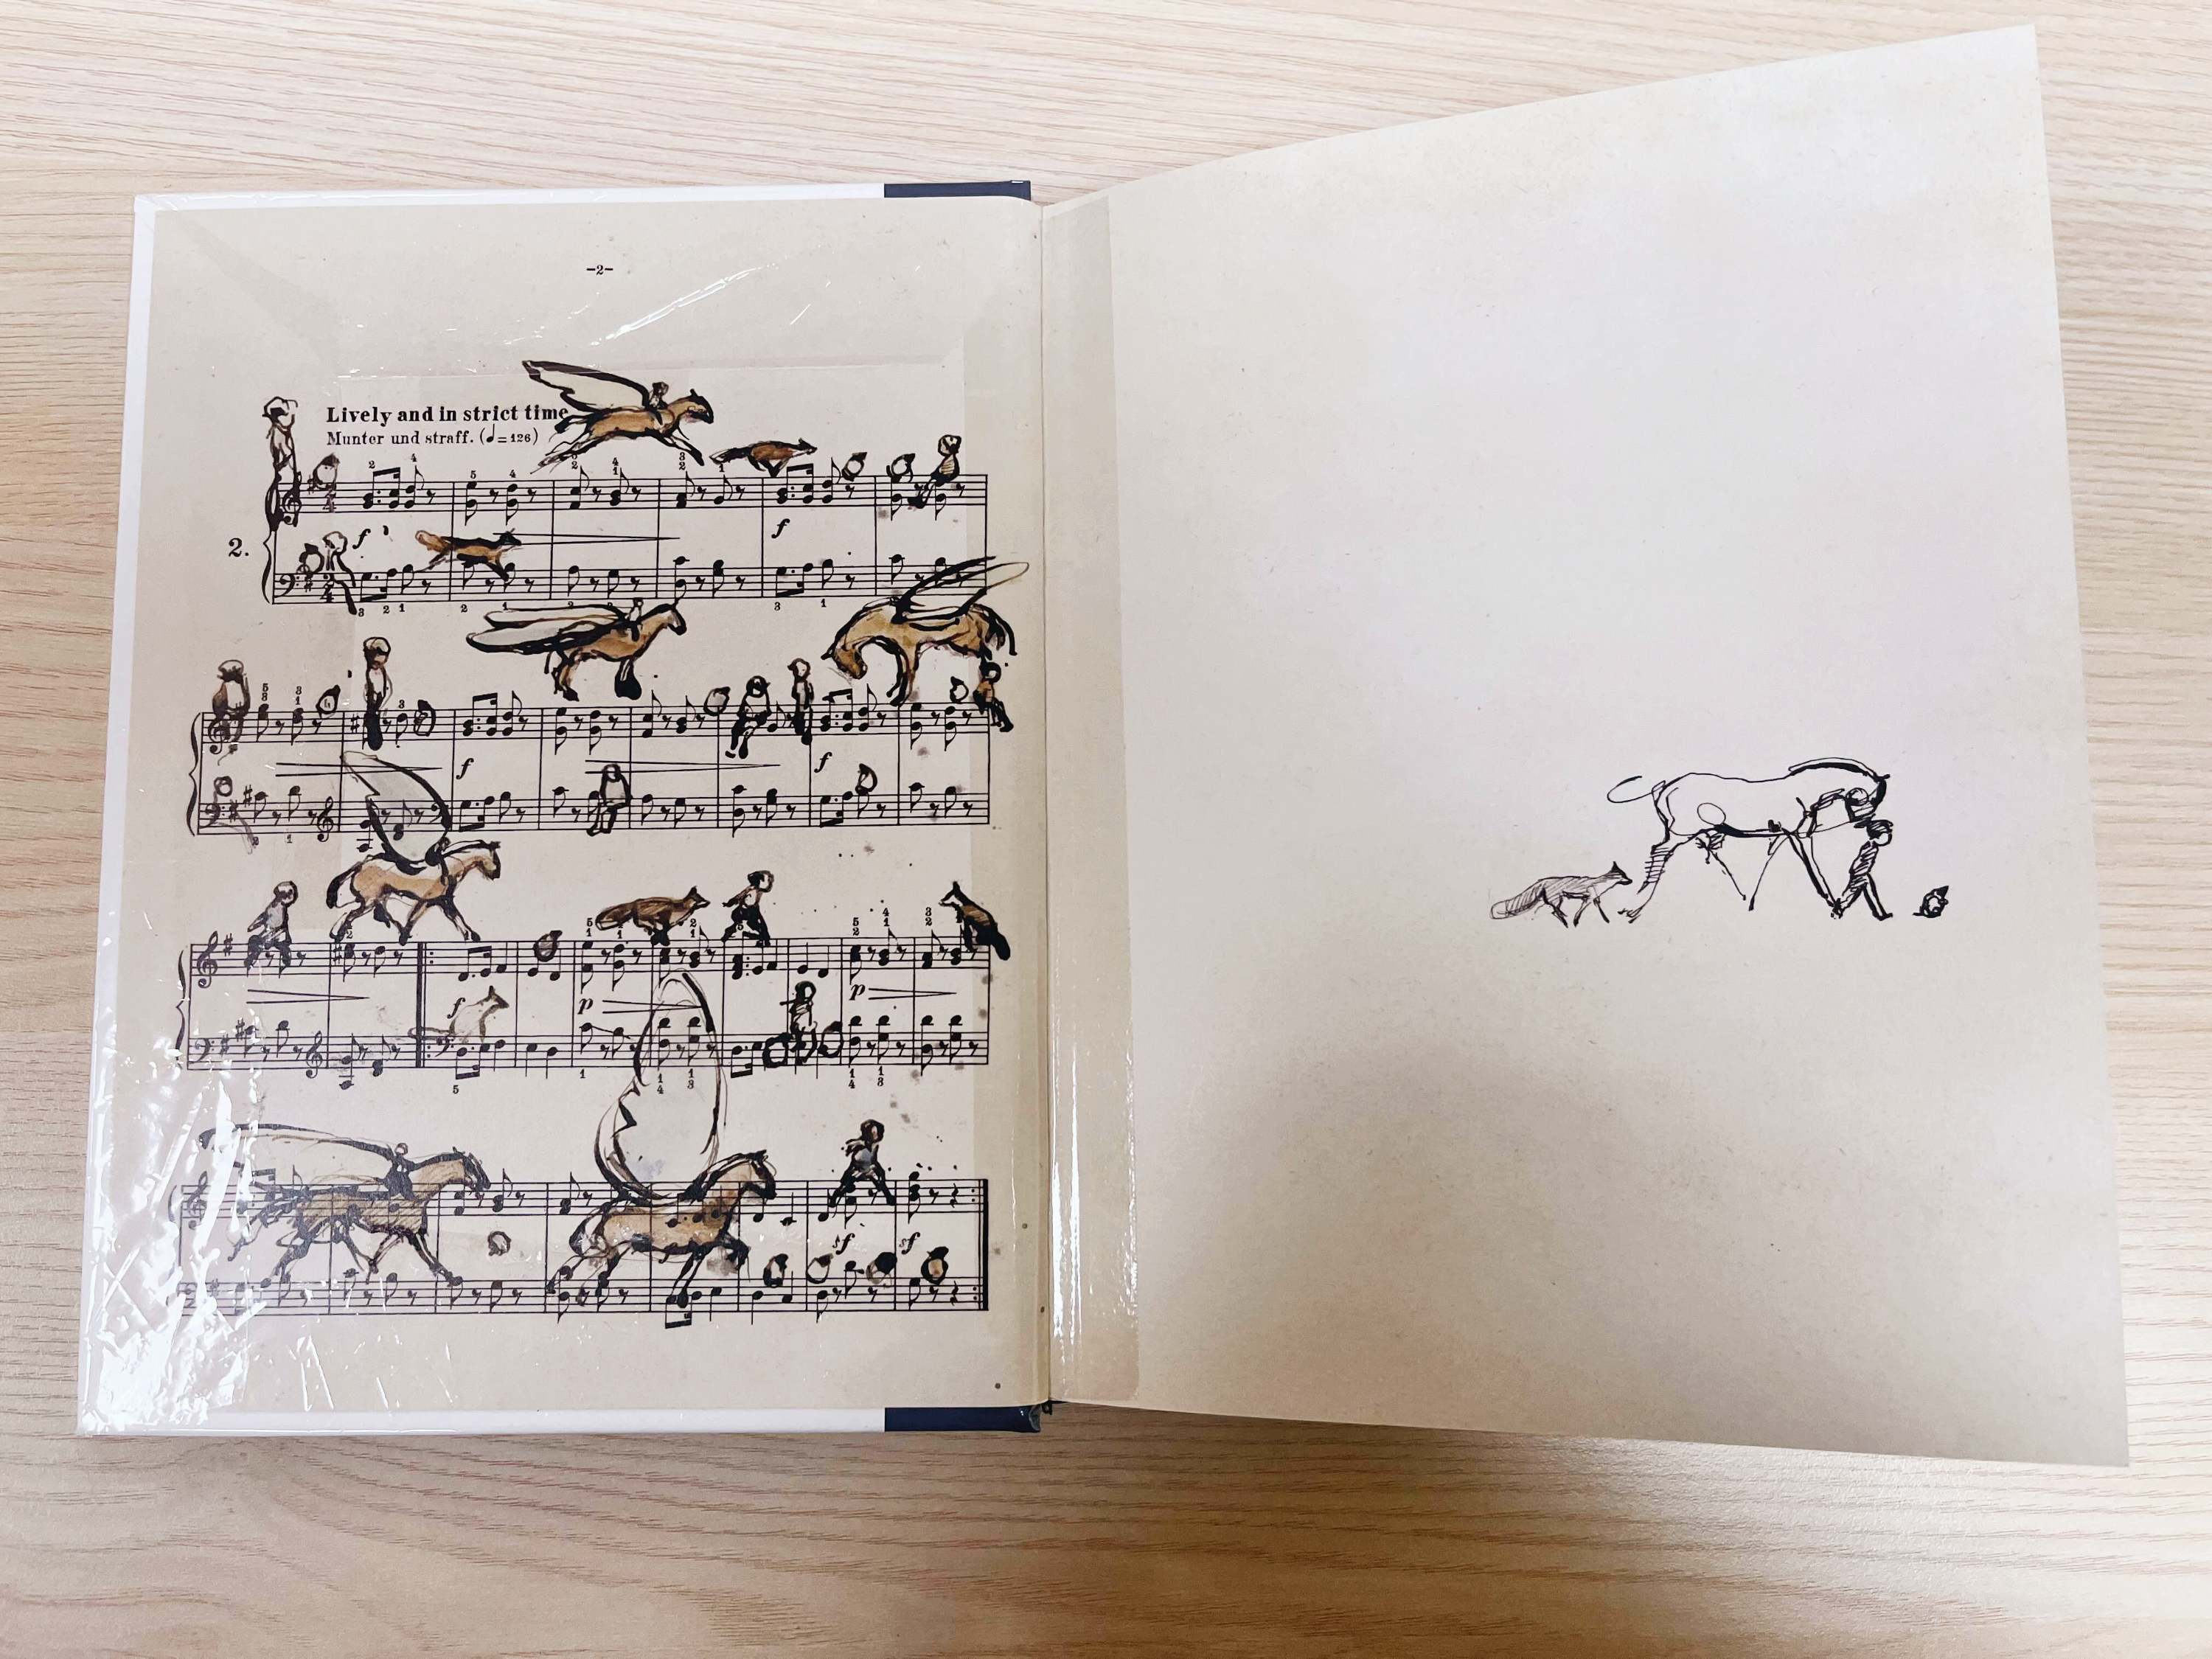 -2-
Lively and in strict time
Munter und straff. (♩=126)
2.
f
f
f
f
f
p
p
sf
sf